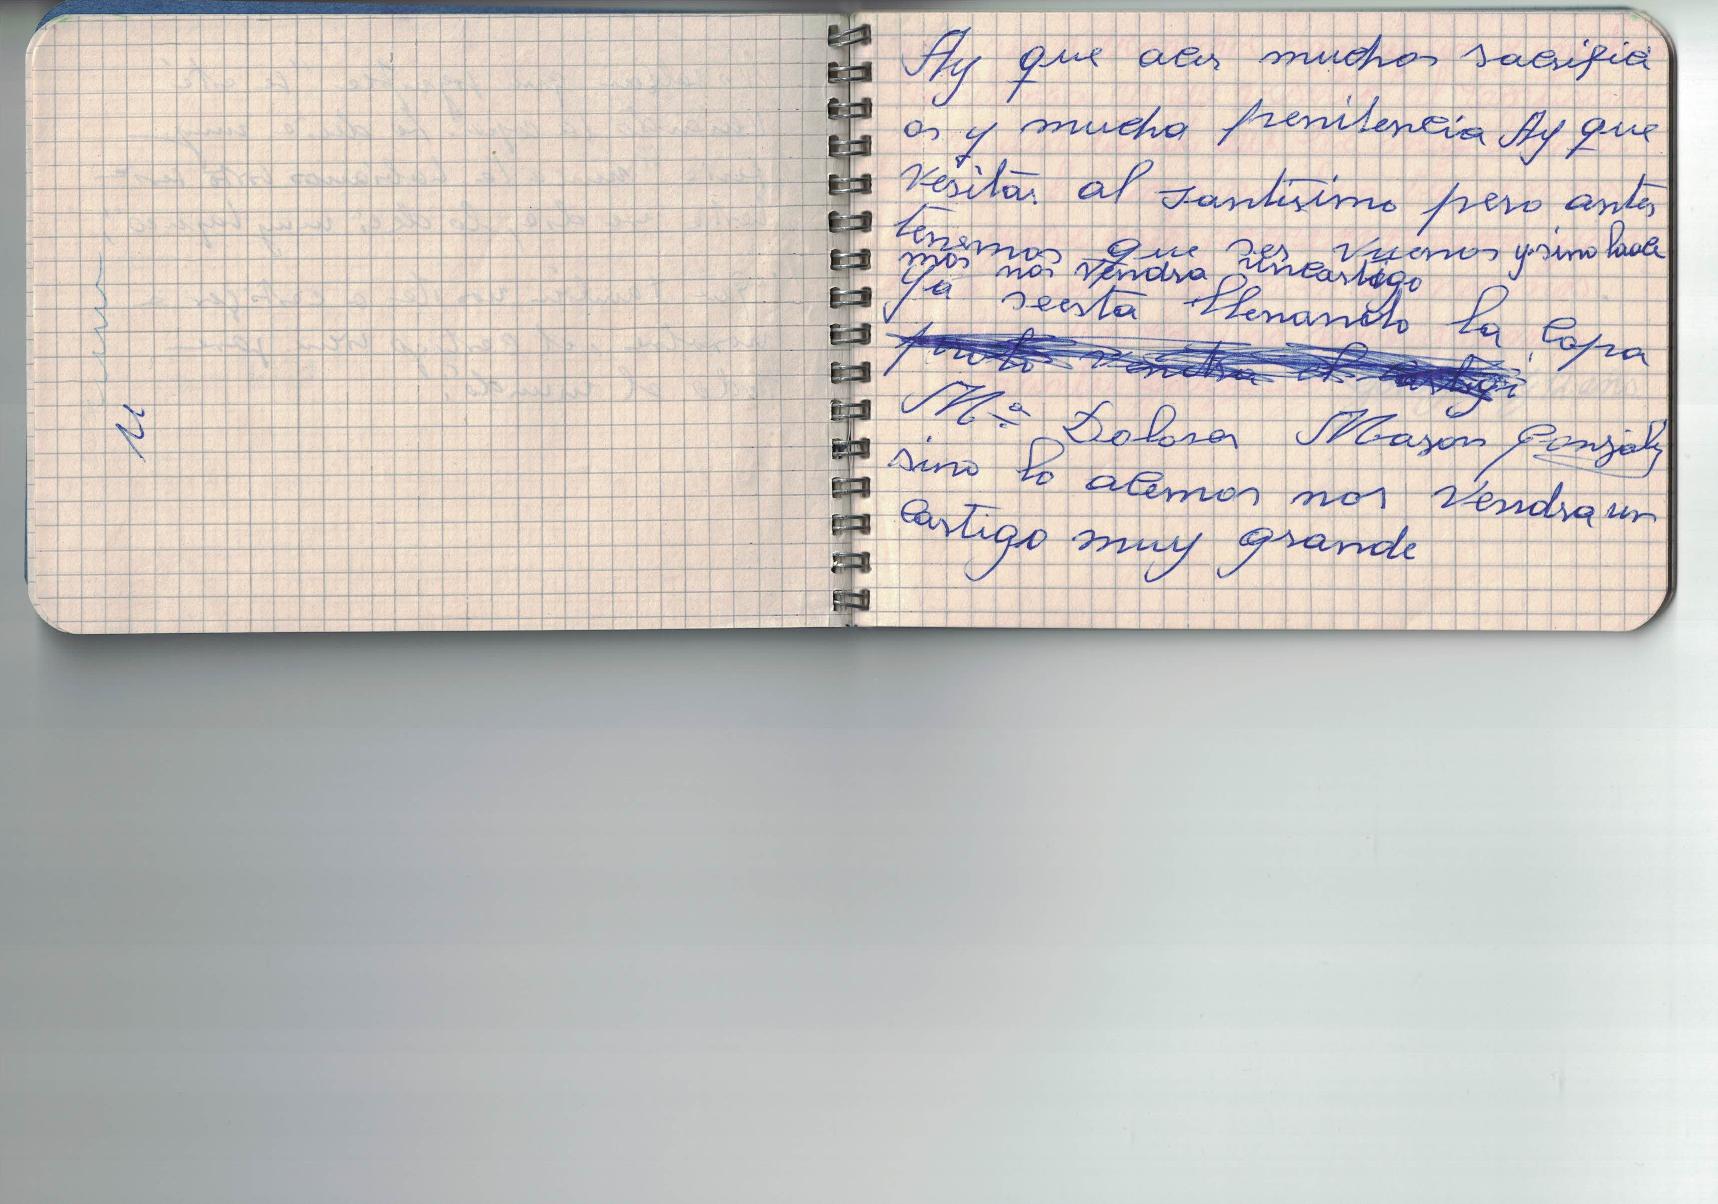 Ay que acer muchos sacrifici
os y mucha penitencia Ay que
vesitar al santisimo pero antes
tenemos que ser vuenos y sino lo ace
mos nos vendra un castigo
Ya seesta llenando la copa
pronto vendra el castigo
Mª Dolores Mason Gonzalez
sino lo acemos nos vendra un
castigo muy grande